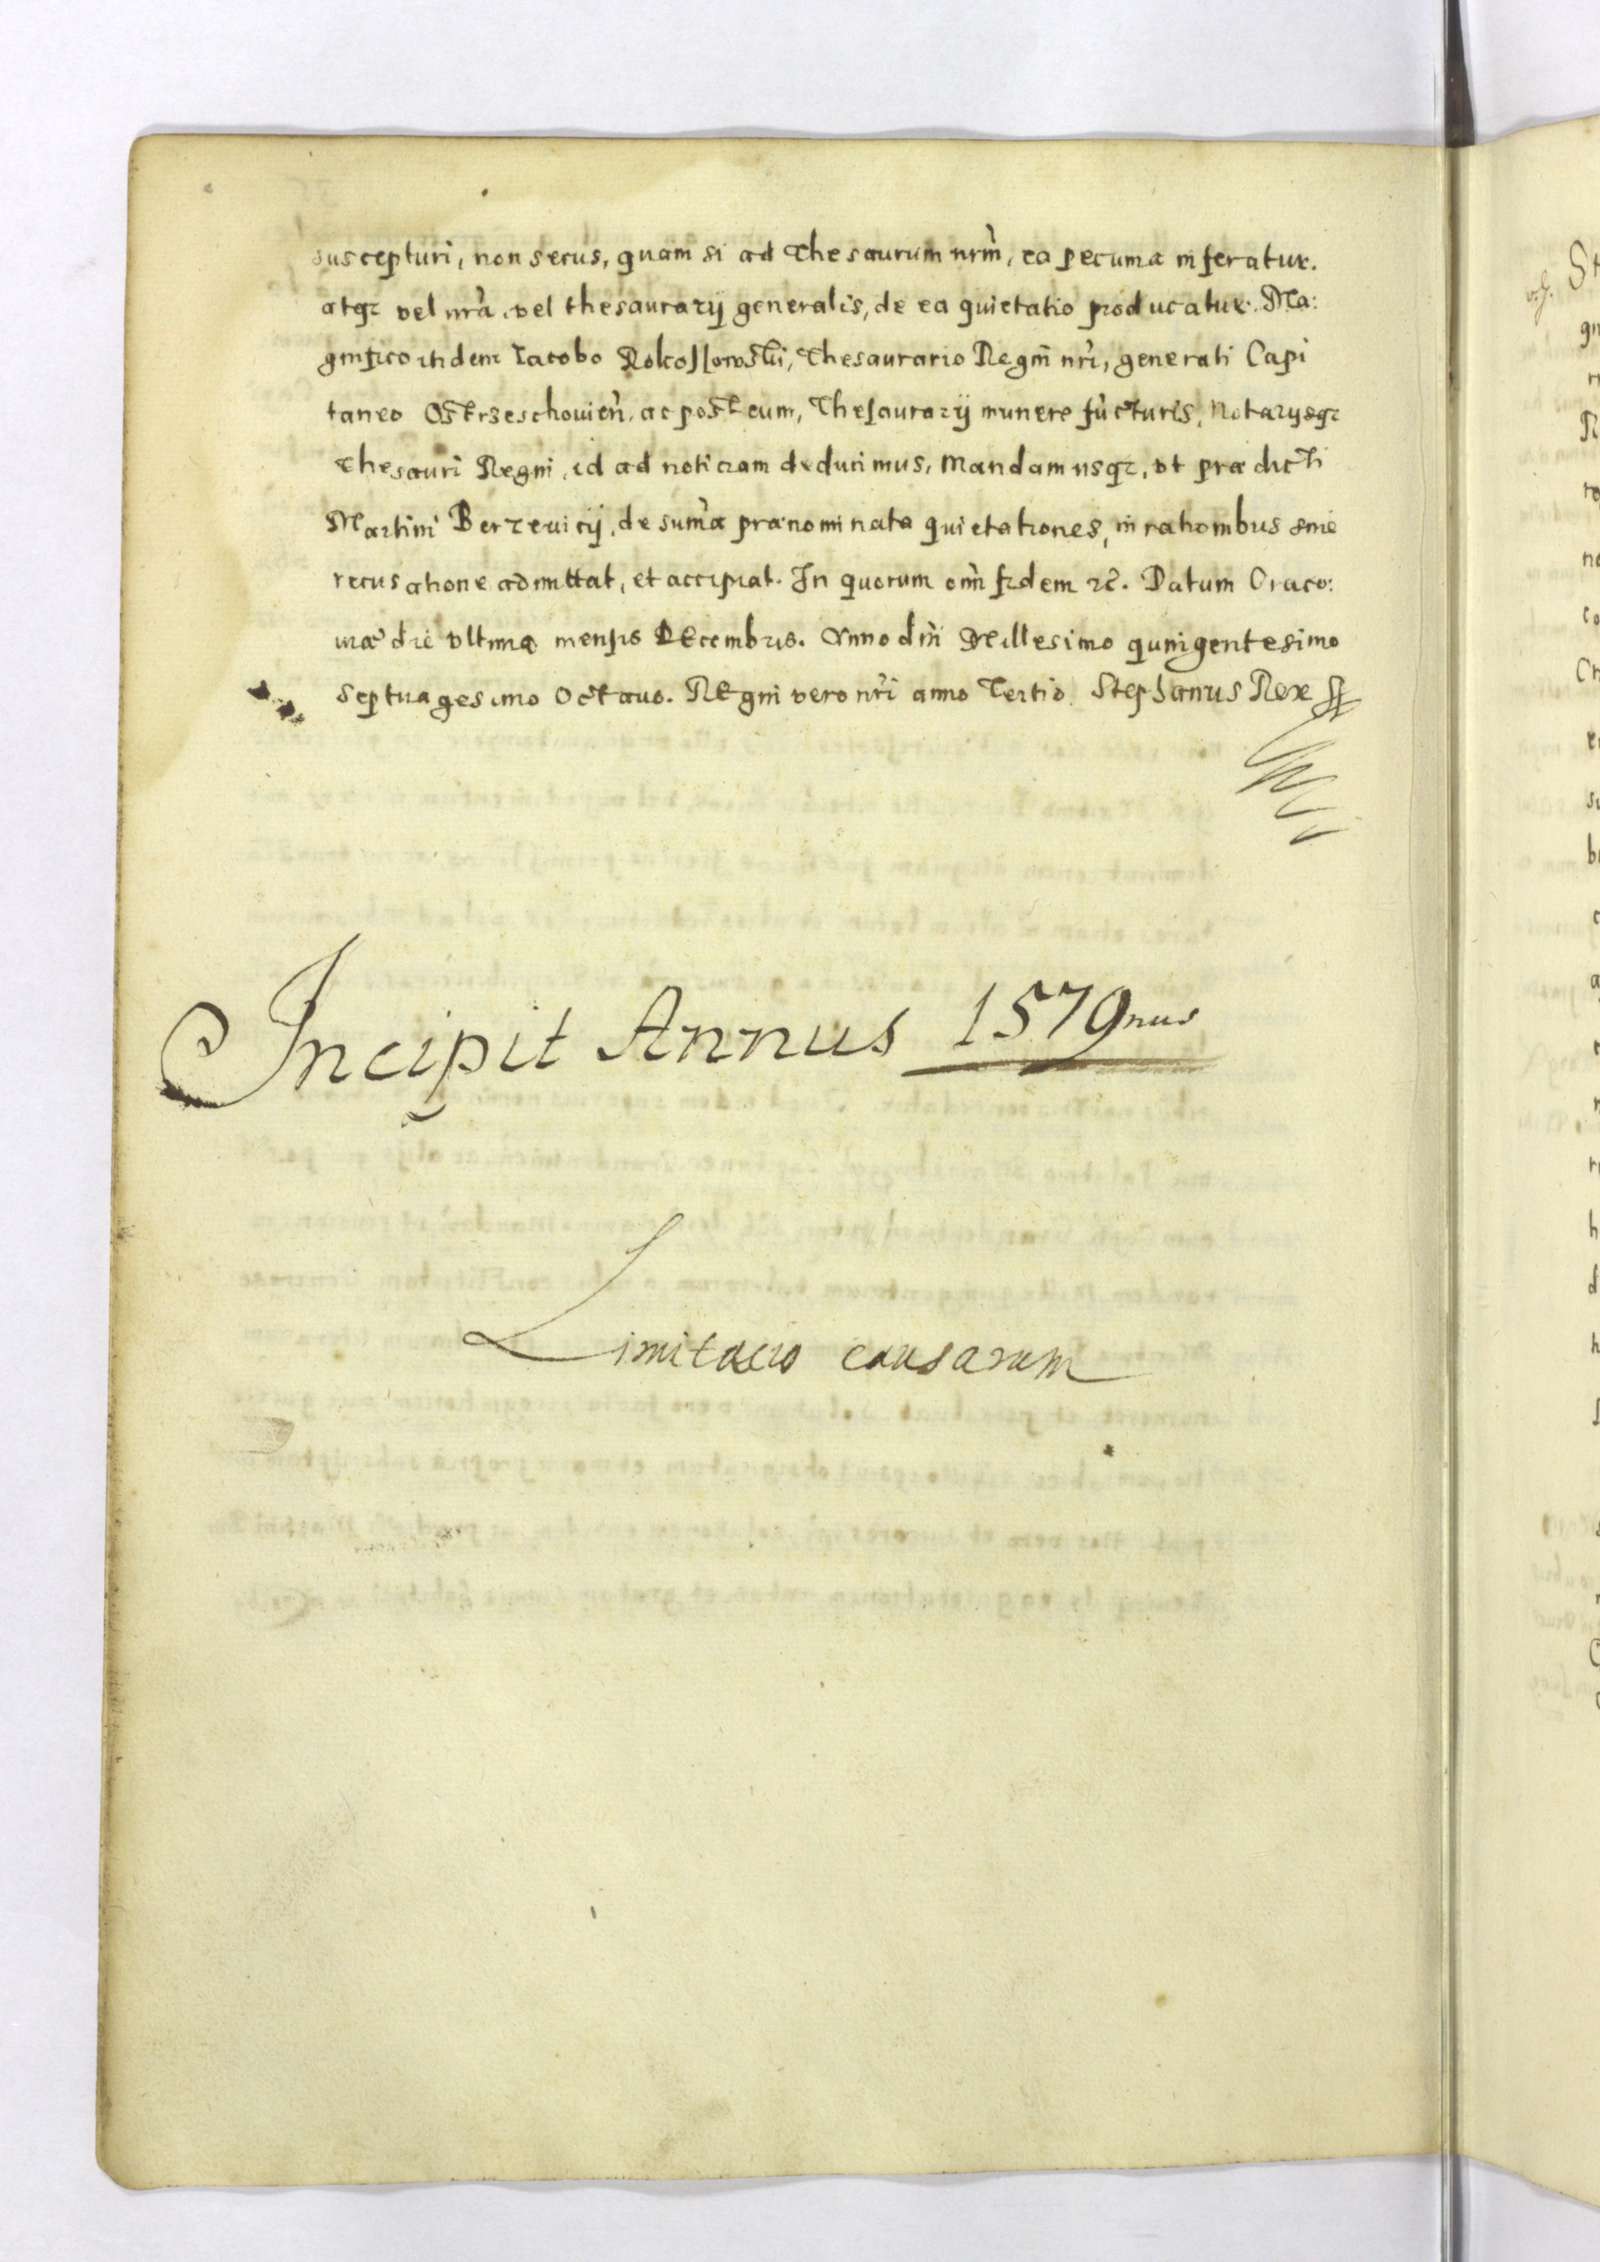 suscepturi, non secus, quam si ad Thesaurum nrm̀, ea pecunia inferatur.
atqz vel nrà, vel thesaurarij generalis, de ea quietatio producatur. Ma:
gnifico itidem Iacobo Rokossowski, Thesaurario Regni nri, generali Capi
taneo Ostrzeschovien̄, ac post eum, Thesaurarij munere fūcturis, Notarijsqz
Thesauri Regni, id ad noticiam deducimus, Mandamusqz, vt prædicti
Martini Berzevicij, de sum̄a prænominata quietationes, in rationibus sine
recusatione admittat, et accipiat. In quorum om̄ fidem ꝛc̄. Datum Craco:
uiæ die vltima mensis Decembris. Anno dni̅ Millesimo quingentesimo
septuagesimo Octauo. Regni vero nrì anno Tertio. Stephanus Rex sst
Incipit Annus 1579nus
Limitacio causarum